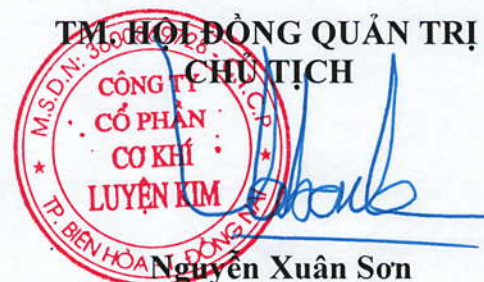 TM. HỘI ĐỒNG QUẢN TRỊ
CHỦ TỊCH
CÔNG TY
CỔ PHẦN
CƠ KHÍ
LUYỆN KIM
TP. BIÊN HÒA T. ĐỒNG NAI
Nguyễn Xuân Sơn